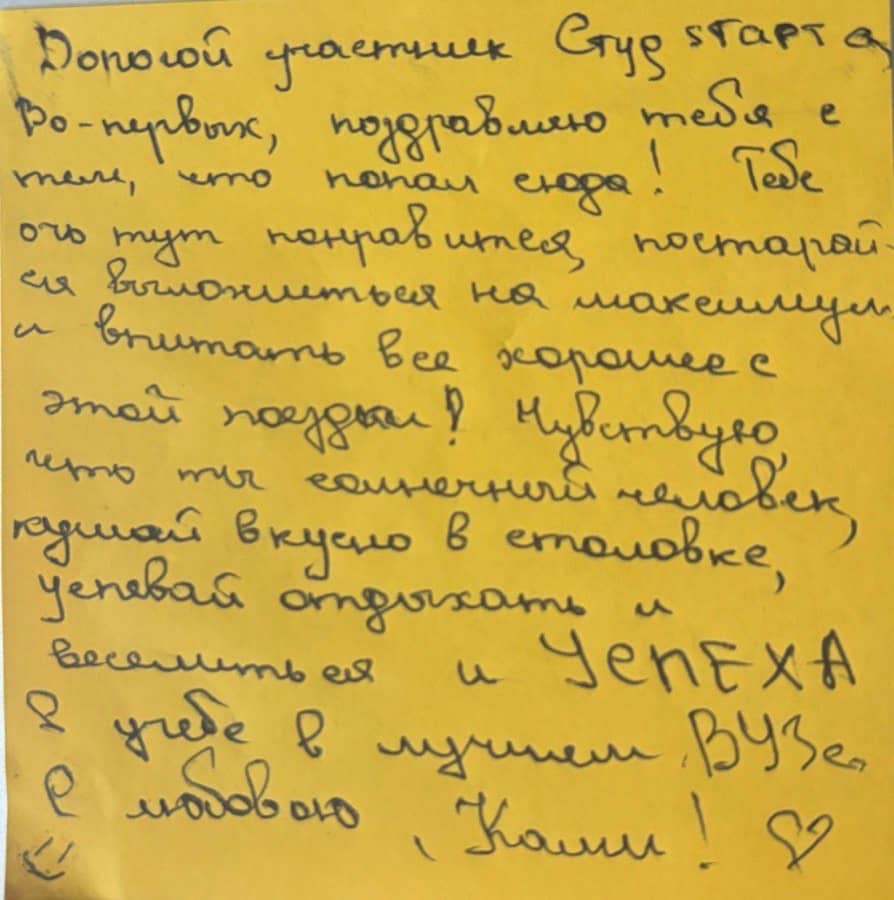 Дорогой участник Студ STAPT а,
Во-первых, поздравляю тебя с
тем, что попал сюда! Тебе
очь тут понравится, постарай-
ся выложиться на максимум
и впитать все хорошее с
этой поездки! Чувствую,
что ты солнечный человек,
кушай вкусно в столовке,
успевай отдыхать и
веселиться и УСПЕХА
в учебе в лучшем ВУЗе.
С любовью, Ками! ♡